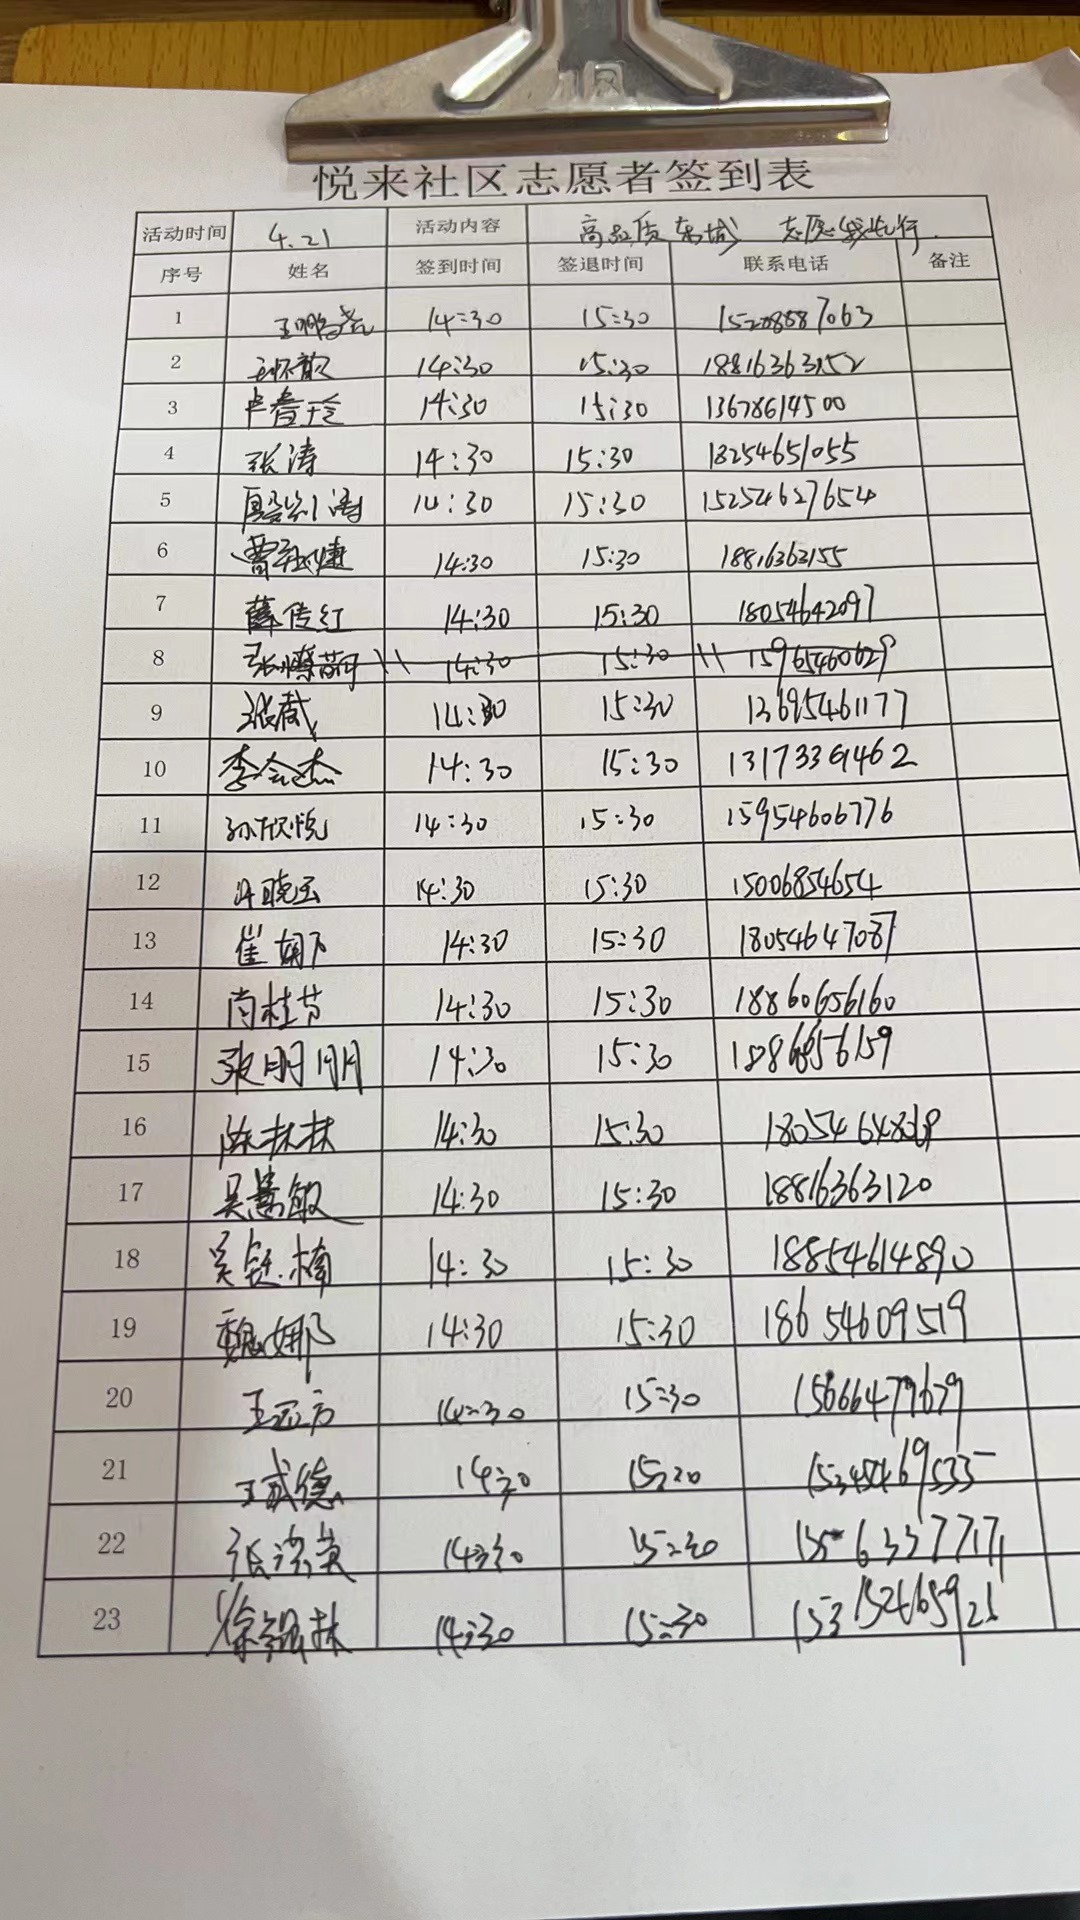 悦来社区志愿者签到表
活动时间 4.21 活动内容 高品质东城 志愿我先行
序号 姓名 签到时间 签退时间 联系电话 备注
1 14:30 15:30
2 14:30 15:30 18816363152
3 14:30 15:30 13678614500
4 张涛 14:30 15:30 18254651055
5 14:30 15:30 15254627654
6 14:30 15:30 18816363155
7 薛传红 14:30 15:30 18054642097
8 14:30 15:30 15965460629
9 14:30 15:30 13695461177
10 李会杰 14:30 15:30 13173391462
11 孙欣悦 14:30 15:30 15954606776
12 14:30 15:30 15006854654
13 14:30 15:30 18054647087
14 肖桂芳 14:30 15:30 18860656160
15 张明明 14:30 15:30
16 陈林林 14:30 15:30
17 吴慧敏 14:30 15:30 18816363120
18 14:30 15:30 18854614890
19 魏娜 14:30 15:30 18654609519
20 王远方 14:30 15:30 15666479679
21 王威德 14:30 15:30
22 张洪英 14:30 15:30
23 14:30 15:30